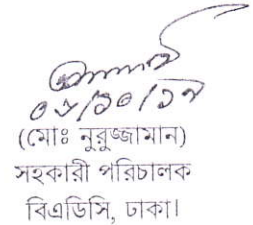 ০৮/১০/১৭
(মোঃ নুরুজ্জামান)
সহকারী পরিচালক
বিএডিসি, ঢাকা।